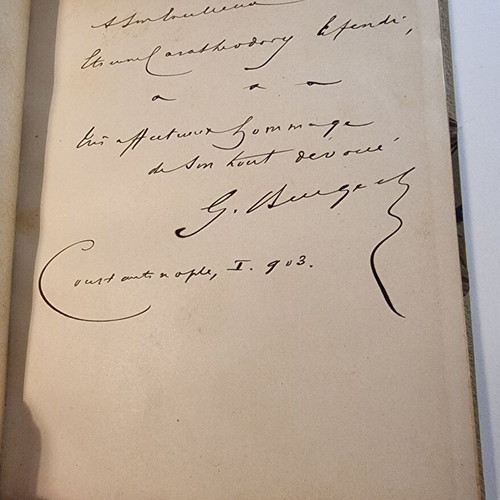 A Son Excellence
Etienne Carathéodory Efendi,
très affectueux hommage
de son tout dévoué.
G.
Constantinople, I. 903.